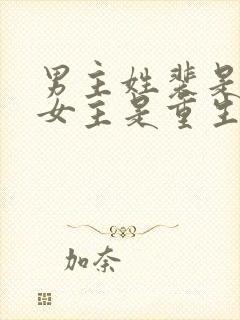 男主姓裴是
女主是重生
加奈